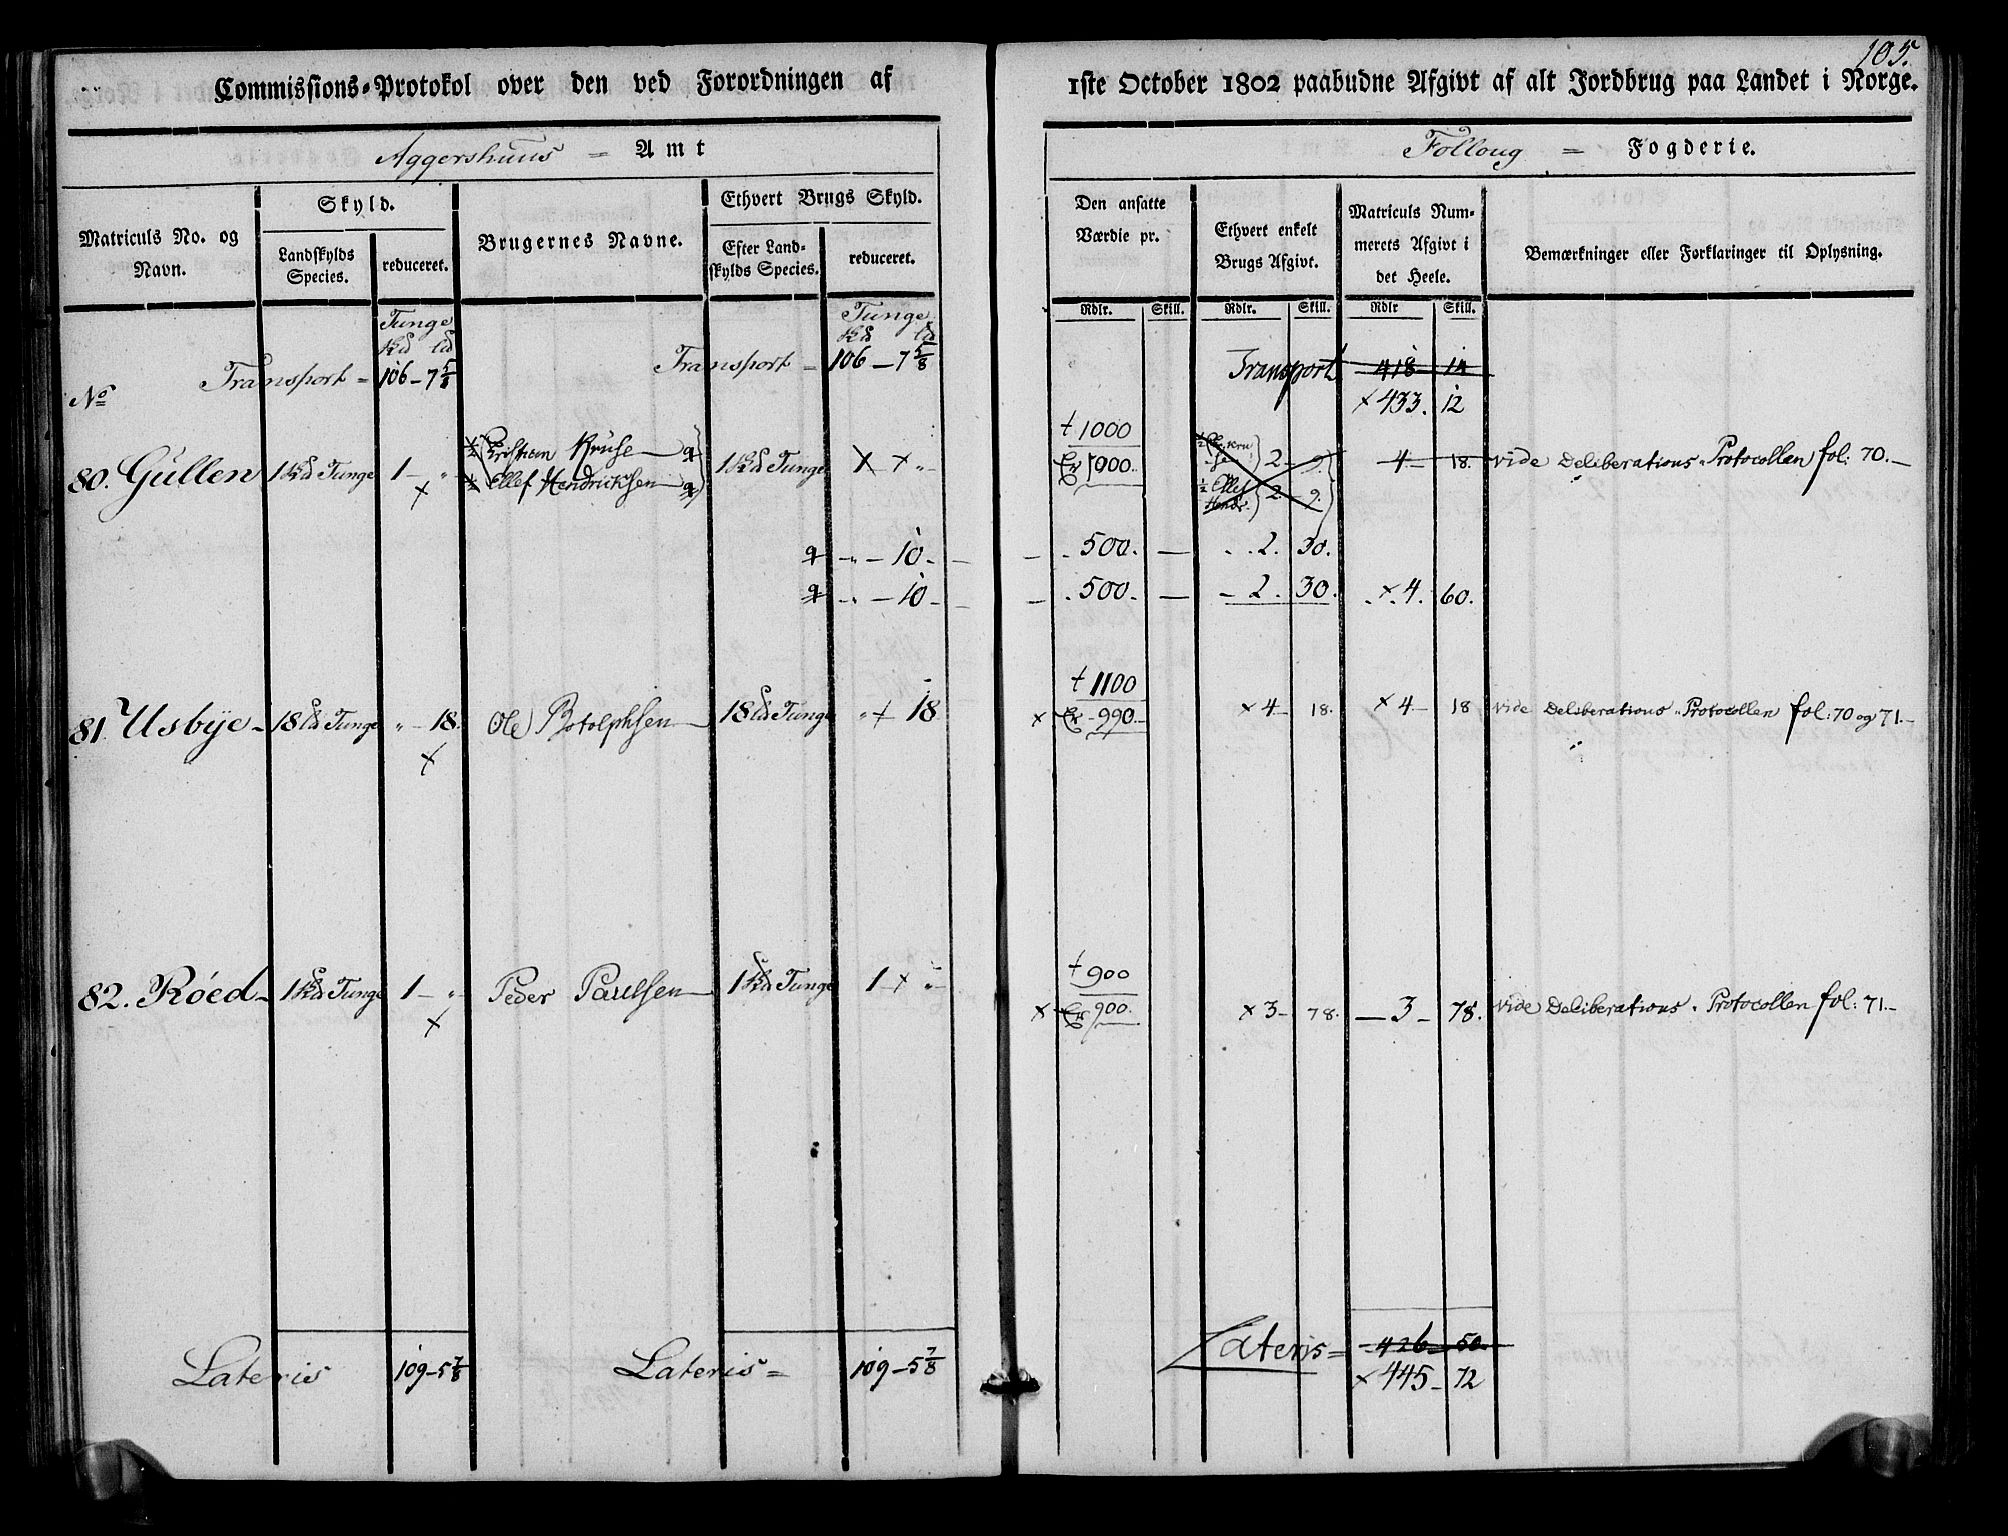 105.
Commissions-Protokol over den ved Forordningen af 1ste October 1802 paabudne Afgivt af alt Jordbrug paa Landet i Norge.
Aggershuus = Amt
Follong = Fogderie.
Matriculs No. og Navn.
Skyld.
Landskylds Species.
reduceret.
Brugernes Navne.
Ethvert Brugs Skyld.
Efter Landskylds Species.
reduceret.
Den ansatte Værdie pr.
Ethvert enkelt Brugs Afgivt.
Matriculs Nummerets Afgivt i det Heele.
Bemærkninger eller Forklaringer til Oplysning.
Rdlr. Skill. Rdlr. Skill. Rdlr Skill.
Tunge Tunge
Transport = 106 - 7 5/8 Transport = 106 - 7 5/8 Transport 418 14
No × 433. 12
80. Gullen 1 Tunge 1 - „ ½ Christian Kruse 1 Tunge × × „ † 1000 2 - 9. 4 - 18. vide Deliberations-Protocollen fol: 70.-
× ½ Ellef Hendrichsen 1000. ½ Ellef Hendr. 2 - 9.
„ - 10. - . 500. - . . 2. 30.
„ - 10 - - . 500. - - 2. 30. × 4. 60.
81 Usbye - 18 Tunge „ - 18. Ole Botolphsen 18 Tunge „ + 18 † 1100 × 4 - 18. × 4 - 18 vide Deliberations-Protocollen fol: 70 og 71.-
× × 990.
82. Röed - 1 Tunge 1 - „ Peder Paulsen 1 Tunge 1 - × „ † 900 × 3 - 78. - 3 - 78. vide Deliberations-Protocollen fol: 71.-
× × 900.
Lateris 109 - 5 7/8 Lateris = 109 - 5 7/8 Lateris = 426 50.
× 445 - 72